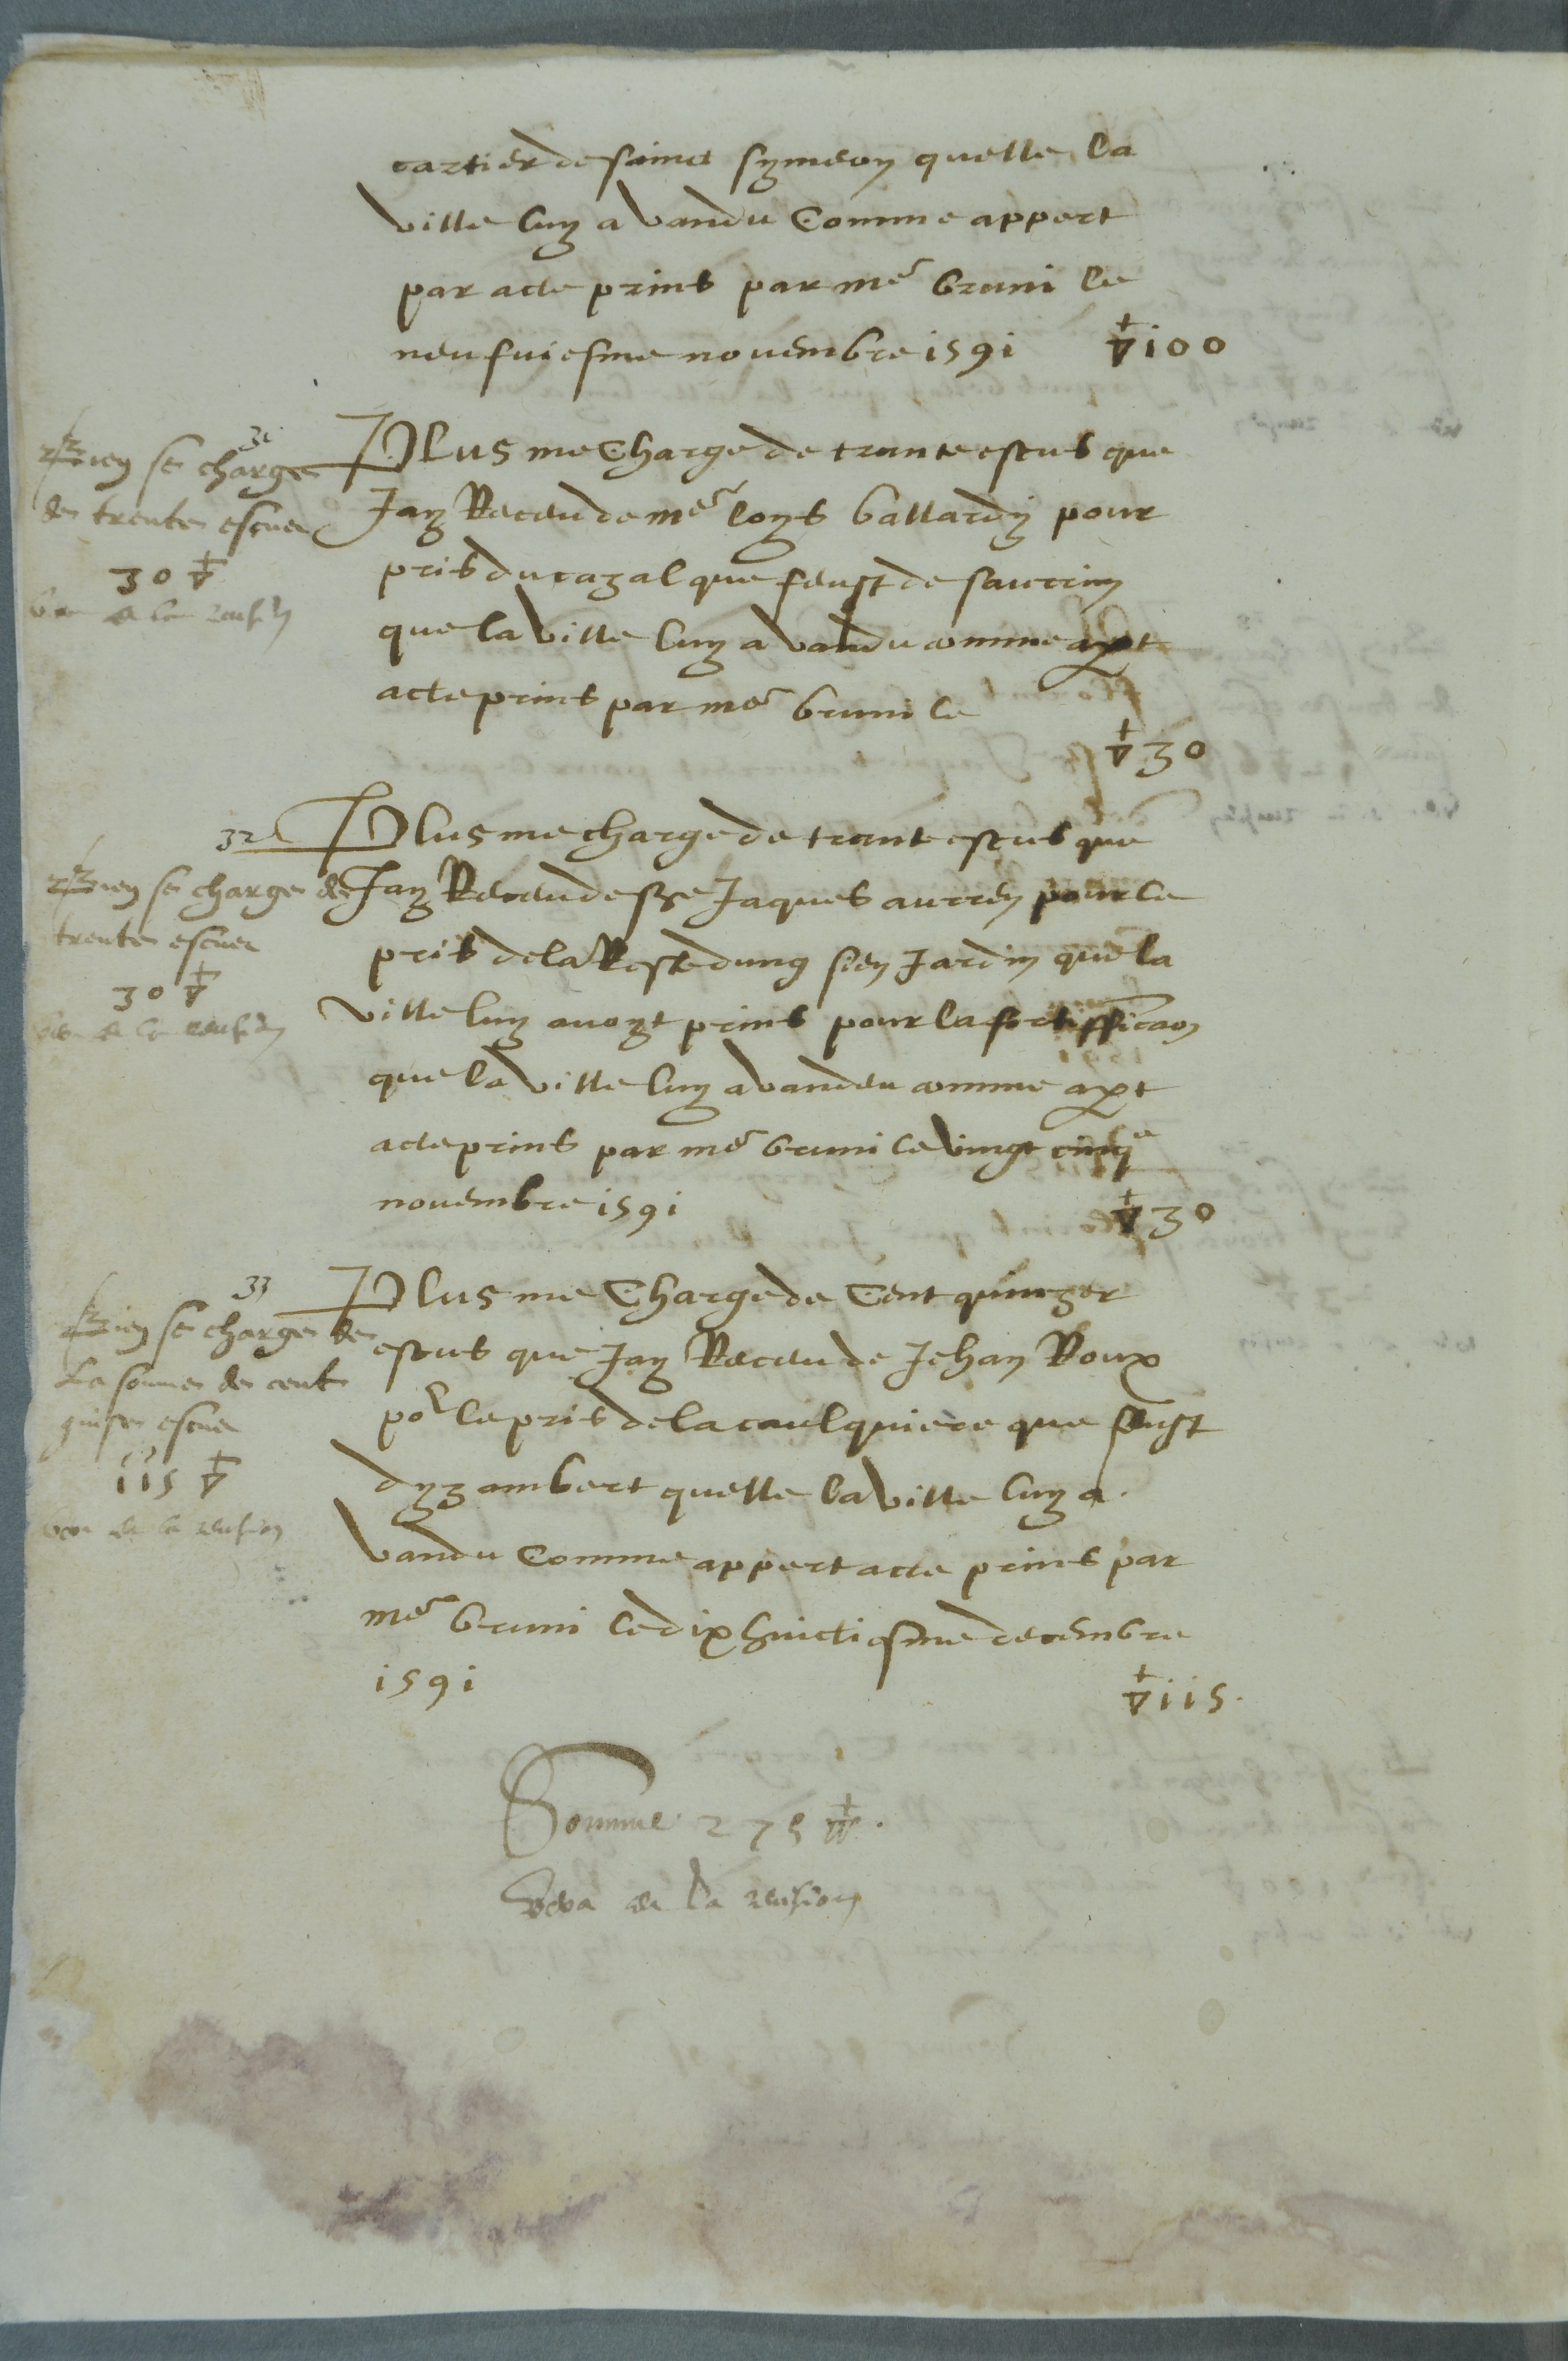 cartier de sainct symeon quelle la
ville luy a vandu Comme appert
par acte prins par me bruni le
neufviesme novembre 1591 ▽ 100
31
Bien se charge
de trente escues
30 ▽
de la
Plus me Charge de trante escus que
Jay Receu de me loys ballardy pour
pris du cazal que feust de saurrin
que la ville luy a vandu comme apert
acte prins par me bruni le
▽ 30
32
Bien se charge de
trente escues
30 ▽
de la
Plus me charge de trante escus que
Jay Receu de sre Jaques aurren pour le
pris de la Reste dung sien Jardin que la
ville luy avoyt prins pour la fortifficaon
que la ville luy a vandeu comme apert
acte prins par me bruni le vingt cinqe
novembre 1591 ▽ 30
33
Bien se charge de
La somme de cent
quinse escues
115 ▽
de la revision
Plus me Charge de Cent quinzer
escus que Jay Receu de Jehan Roux
por le pris de la caulquiere que feust
dyzambert quelle la ville luy a
vandu Comme appert acte prins par
me bruni le dix huictiesme decembre
1591 ▽ 115.
Somme 275 ▽.
Veva de la revision